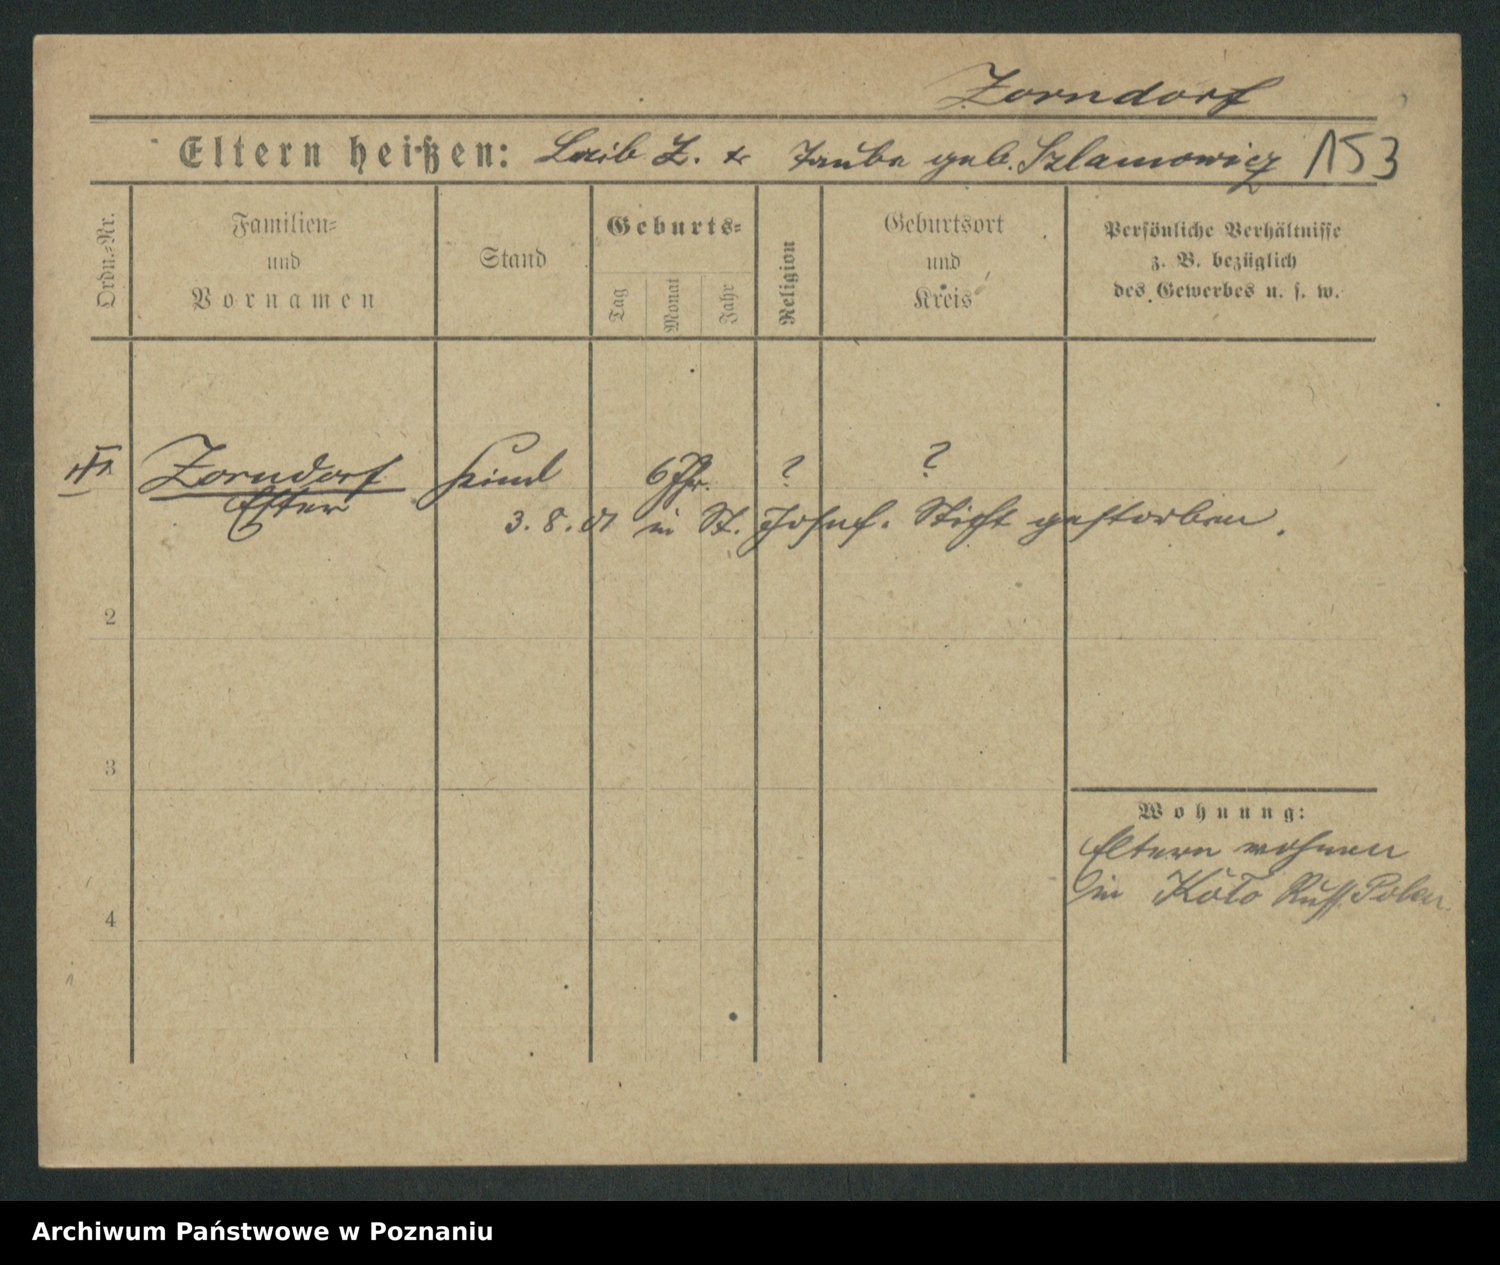 Zorndorf
Eltern heißen: Laib Z. & Taube geb. Szlamowicz 153
Ordn.-Nr.
Familien- und Vornamen
Stand
Geburts-
Tag
Monat
Jahr
Religion
Geburtsort und Kreis
Persönliche Verhältnisse
z. B. bezüglich
des Gewerbes u. s. w.
Zorndorf Kind 6 Jhr. ? ?
Ester
3. 8. 01 in St. Josef. Stift gestorben.
2
3
Wohnung:
Eltern wohnen
in Koło Russ. Polen
4
Archiwum Państwowe w Poznaniu